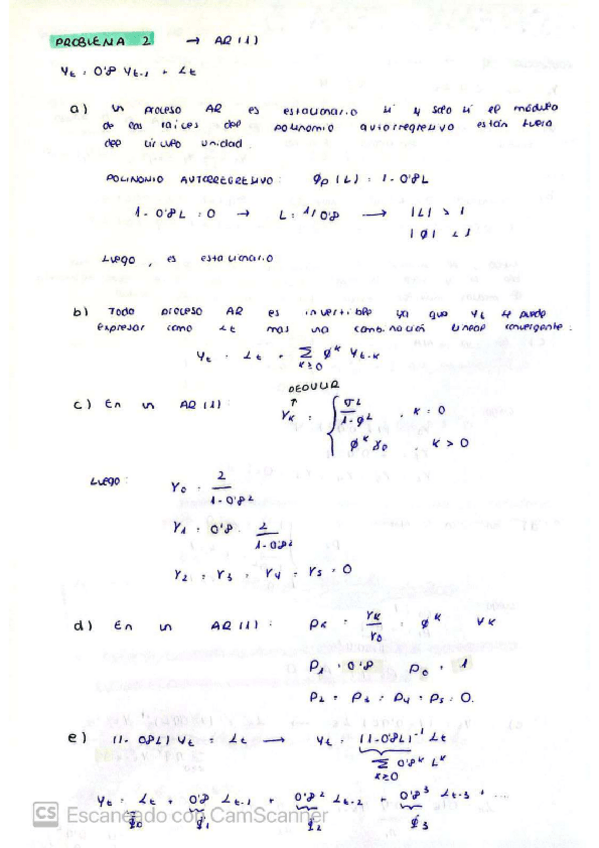 PROBLEMA 2 → AR(1)
Yt = 0'8 Yt-1 + αt
a) Un proceso AR es estacionario si y solo si el módulo
de las raíces del polinomio autorregresivo están fuera
del círculo unidad.
POLINOMIO AUTORREGRESIVO: ϕp(L) = 1 - 0'8L
1 - 0'8L = 0 → L = 1/0'8 → |L| > 1
|ϕ| < 1
Luego, es estacionario
b) Todo proceso AR es invertible ya que Yt se puede
expresar como αt mas una combinación lineal convergente:
Yt = αt + Σ k≥0 ϕ^k Yt-k
DEDUCIR
↑
c) En un AR(1): γk = { σ²/(1-ϕ²), k = 0
ϕ^k γ0, k > 0
Luego: γ0 = 2/(1-0'8²)
γ1 = 0'8 · 2/(1-0'8²)
γ2 = γ3 = γ4 = γ5 = 0
d) En un AR(1): ρk = γk/γ0 = ϕ^k ∀k
ρ1 = 0'8 ρ0 = 1
ρ2 = ρ3 = ρ4 = ρ5 = 0.
e) (1-0'8L) Yt = αt → Yt = (1-0'8L)^-1 αt
Σ k≥0 0'8^k L^k
Yt = αt + 0'8 αt-1 + 0'8² αt-2 + 0'8³ αt-3 + ...
ϕ0 ϕ1 ϕ2 ϕ3
CS Escaneado con CamScanner